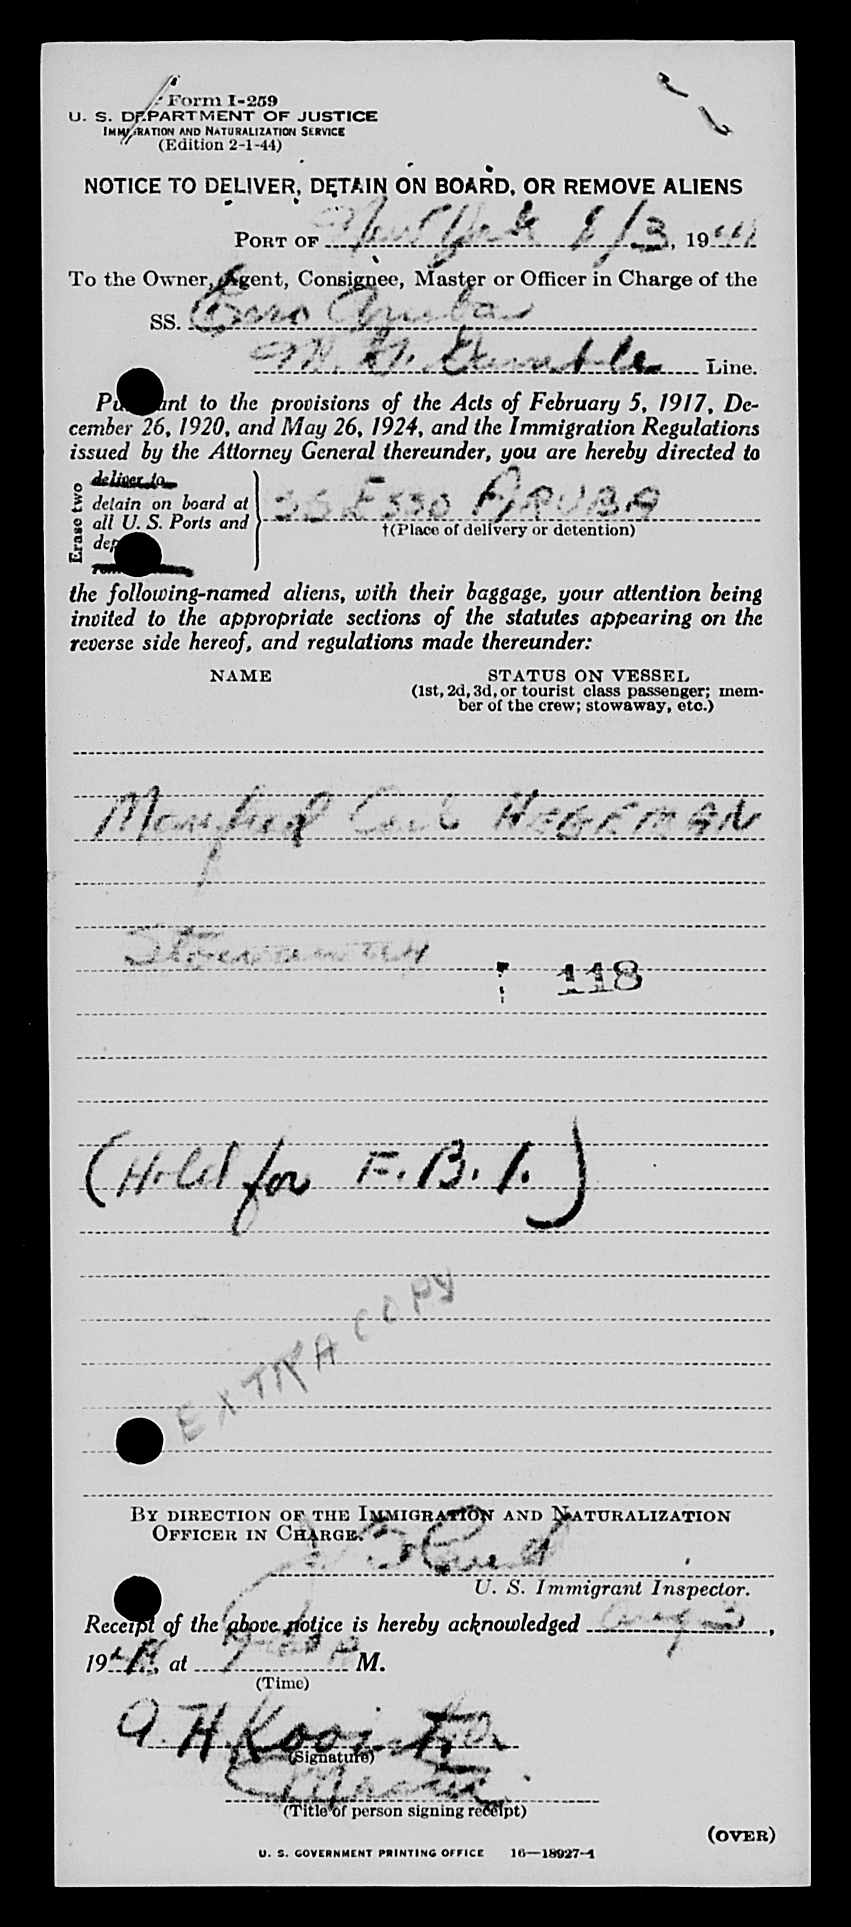 Form I-259
U. S. DEPARTMENT OF JUSTICE
IMMIGRATION AND NATURALIZATION SERVICE
(Edition 2-1-44)
NOTICE TO DELIVER, DETAIN ON BOARD, OR REMOVE ALIENS
PORT OF New York 8/3, 1944
To the Owner, Agent, Consignee, Master or Officer in Charge of the
SS. Esso Aruba
Line.
Pursuant to the provisions of the Acts of February 5, 1917, De-
cember 26, 1920, and May 26, 1924, and the Immigration Regulations
issued by the Attorney General thereunder, you are hereby directed to
Erase two
deliver to
detain on board at
all U. S. Ports and
SS ESSO ARUBA
†(Place of delivery or detention)
the following-named aliens, with their baggage, your attention being
invited to the appropriate sections of the statutes appearing on the
reverse side hereof, and regulations made thereunder:
NAME STATUS ON VESSEL
(1st, 2d, 3d, or tourist class passenger; mem-
ber of the crew; stowaway, etc.)
Manfred HEGEMAN
Stowaway
118
(Hold for F. B. I.)
EXTRA COPY
BY DIRECTION OF THE IMMIGRATION AND NATURALIZATION
OFFICER IN CHARGE.
U. S. Immigrant Inspector.
Receipt of the above notice is hereby acknowledged Aug 3,
1944, at M.
(Time)
A. H.
(Signature)
Master
(Title of person signing receipt)
(OVER)
U. S. GOVERNMENT PRINTING OFFICE 16—18927-1